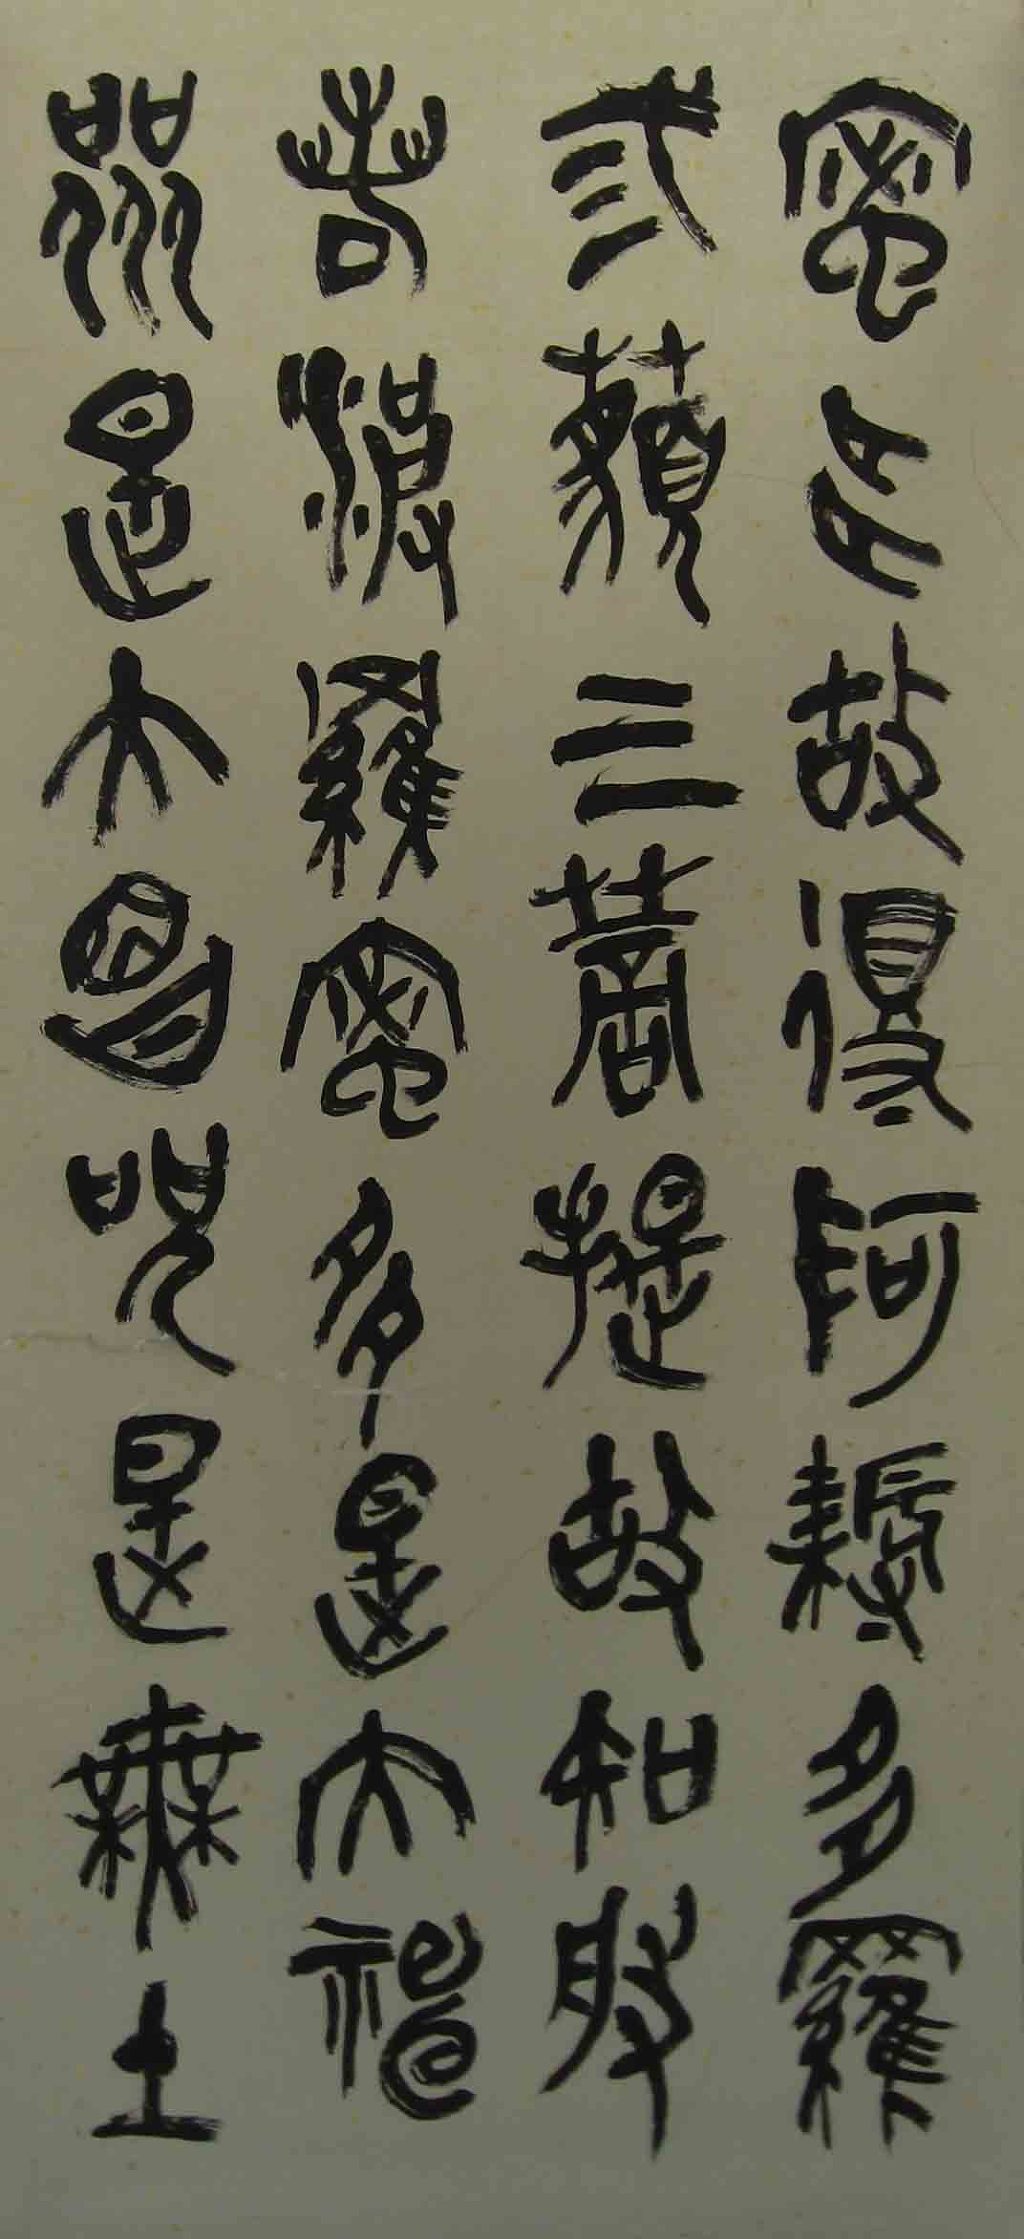 蜜多故得阿耨多羅
弎藐三菩提故知般
若波羅蜜多是大神
咒是大明咒是無上